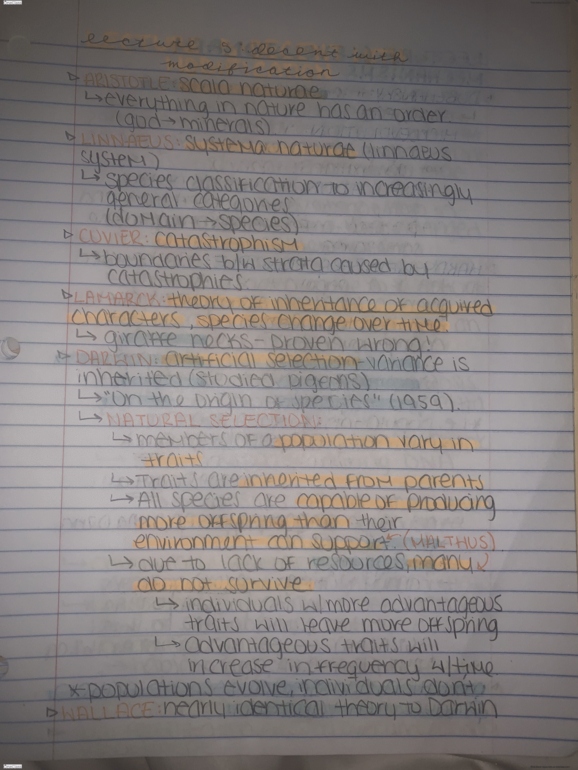 lecture 3: decent with
modification
▷ ARISTOTLE: scala naturae
↳ everything in nature has an order
(god → minerals)
▷ LINNAEUS: systema naturae (linnaeus
system)
↳ species classification to increasingly
general categories
(domain → species)
▷ CUVIER: catastrophism
↳ boundaries b/w strata caused by
catastrophies
▷ LAMARCK: theory of inheritance of acquired
characters, species change over time.
↳ giraffe necks - proven wrong!
▷ DARWIN: artificial selection - variance is
inherited (studied pigeons)
↳ "On the origin of species" (1959).
↳ NATURAL SELECTION:
↳ members of a population vary in
traits
↳ Traits are inherited from parents
↳ All species are capable of producing
more offspring than their
environment can support. (MALTHUS)
↳ due to lack of resources, many
do not survive
↳ individuals w/more advantageous
traits will leave more offspring
↳ advantageous traits will
increase in frequency w/time
* populations evolve, individuals don't
▷ WALLACE: nearly identical theory to Darwin